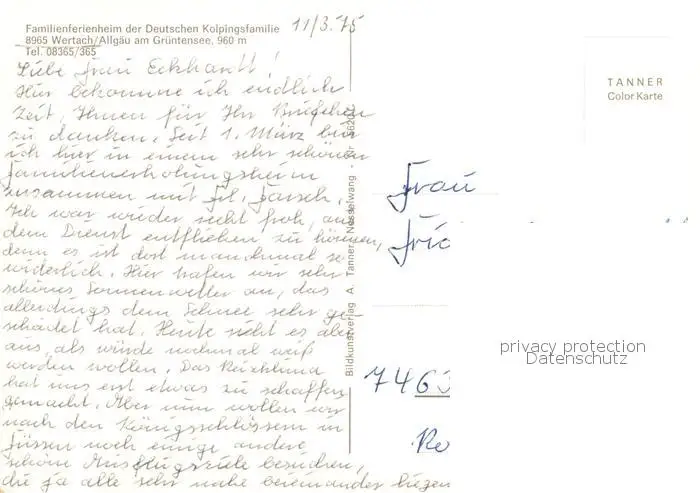 Familienferienheim der Deutschen Kolpingsfamilie
8965 Wertach/Allgäu am Grüntensee, 960 m
Tel. 08365/365
11/3.75
Liebe Frau Eckhardt!
Hier bekomme ich endlich
Zeit, Ihnen für Ihr Briefchen
zu danken. Seit 1. März bin
ich hier in einem sehr schönen
Familienerholungsheim
zusammen mit Frl. Farsch.
Ich war wieder recht froh, aus
dem Dienst entfliehen zu können,
denn es ist dort manchmal so
widerlich. Hier trafen wir sehr
schönes Sonnenwetter an, das
allerdings dem Schnee sehr ge-
schadet hat. Heute sieht es aber
aus, als würde nochmal weiß
werden wollen. Das
hat uns erst etwas zu schaffen
gemacht. Aber nun wollen wir
nach den Königsschlössern in
Füssen noch einige andere
schöne Ausflugsziele besuchen,
die ja alle sehr nahe beieinander liegen
Bildkunstverlag A. Tanner, Nesselwang
TANNER
Color Karte
Frau
7463
Ro
privacy protection
Datenschutz